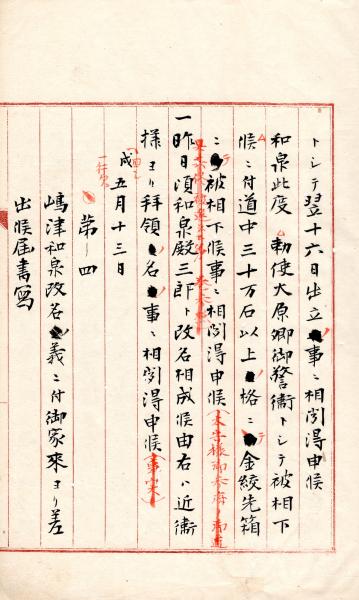 トシテ翌十六日出立ノ事ニ相聞得申候
和泉此度 勅使大原卿御警衛トシテ被相下
候ニ付道中三十万石以上ノ格ニテ金紋先箱
ニテ被相下候事ニ相聞得申候
一昨日頃和泉殿三郎ト改名相成候由右ハ近衛
様ヨリ拝領ノ名ノ事ニ相聞得申候(事実)
戌五月十三日
一行欠
第一四
嶋津和泉改名ノ義ニ付御家来ヨリ差
出候届書写